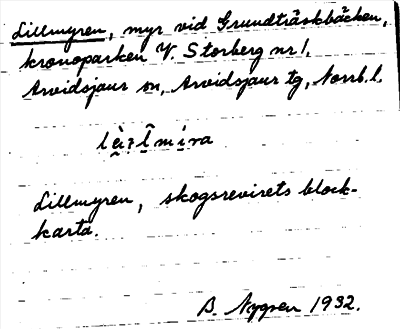 Lillmyren, myr vid Grundträskbäcken,
kronoparken V. Storberg nr 1,
Arvidsjaur sn, Arvidsjaur tg, Norrb.l.
Lillmyren, skogsrevirets block-
karta.
B. Nygren 1932.